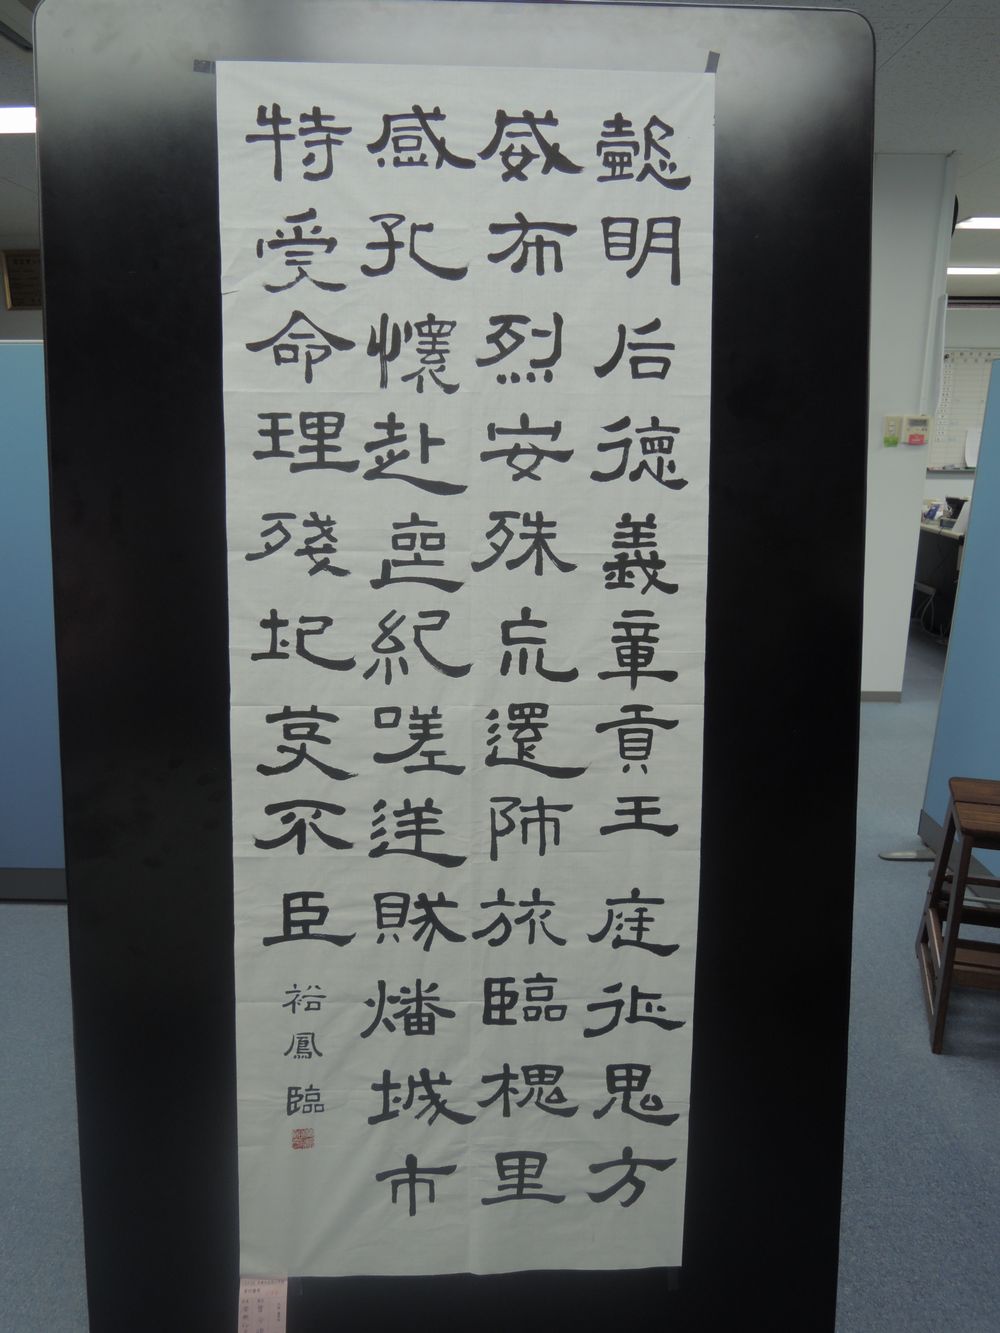 懿明后德義章貢王庭征鬼方
威布烈安殊巟還師旅臨槐里
感孔懷赴喪紀嗟逆賊燔城市
特受命理殘圮芟不臣
裕鳳臨